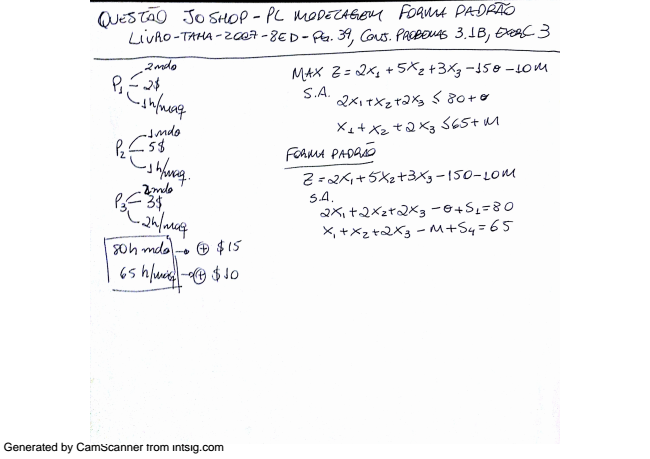 QUESTÃO JOSHOP - PL MODELAGEM FORMA PADRÃO
LIVRO-TAHA-2007-8ED-PG. 39, CONJ. PROBLEMAS 3.1B, EXERC 3
2mdo
P1 2$
1h/maq
1mdo
P2 5$
1h/maq.
2mdo
P3 3$
2h/maq
80h mdo → ⊕ $15
65 h/maq → ⊕ $10
MAX Z = 2X1 + 5X2 + 3X3 - 15θ - 10M
S.A. 2X1+X2+2X3 ≤ 80+θ
X1+X2+2X3 ≤ 65+M
FORMA PADRÃO
Z = 2X1+5X2+3X3-15θ-10M
S.A.
2X1+2X2+2X3-θ+S1=80
X1+X2+2X3-M+S4=65
Generated by CamScanner from intsig.com